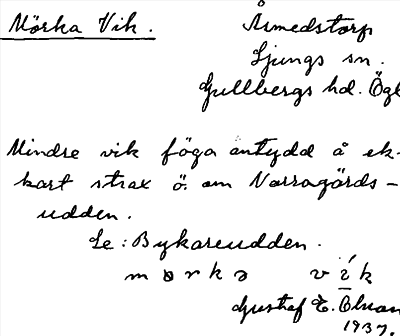 Mörka Vik.
Åsmedstorp
Ljungs sn.
Gullbergs hd. Ögl
Mindre vik föga antydd å ek-
kart strax ö. om Norrgårds-
udden.
Se: Bykareudden.
mɵrkə vík
Gustaf E. Olsson
1937.